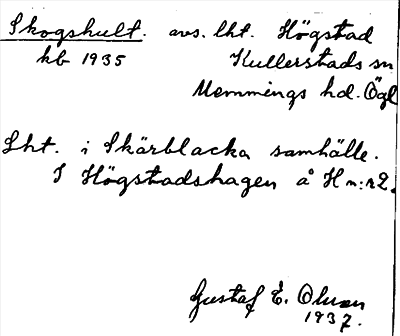 Skogshult. avs. lht. Högstad
kb 1935 Kullerstads sn
Memmings hd. Ögl
Lht. i Skärblacka samhälle.
I Högstadshagen å H n:r 2.
Gustaf E. Olsson
1937.